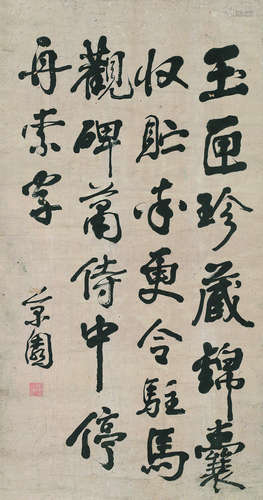 玉匣珍藏錦囊
收貯率更令駐馬
觀碑蕭侍中停
舟索字